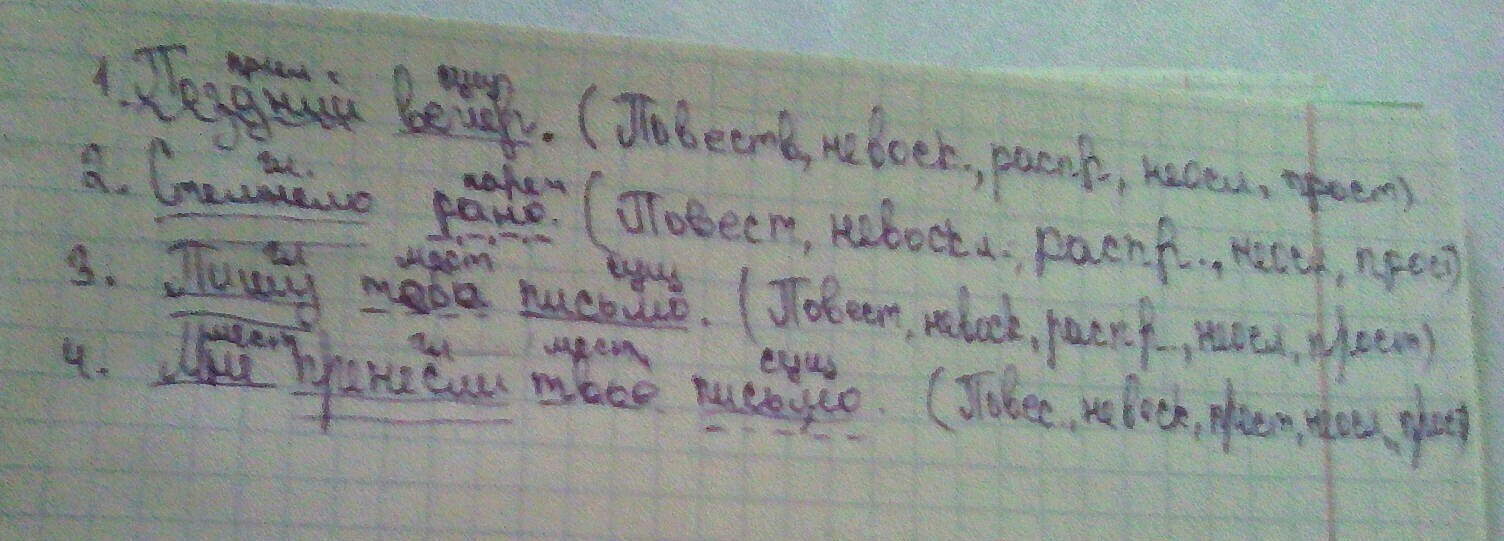 прил. сущ
1. Поздний вечер. (Повеств, невоск., распр, неосл, прост)
гл. нареч
2. Стемнело рано. (Повест, невоскл., распр., неосл, прост)
гл мест сущ
3. Пишу тебе письмо. (Повест, невоск, распр., неосл, прост)
мест гл мест сущ
4. Мне принесли твое письмо. (Повес., невоск, прост, неосл, прост)